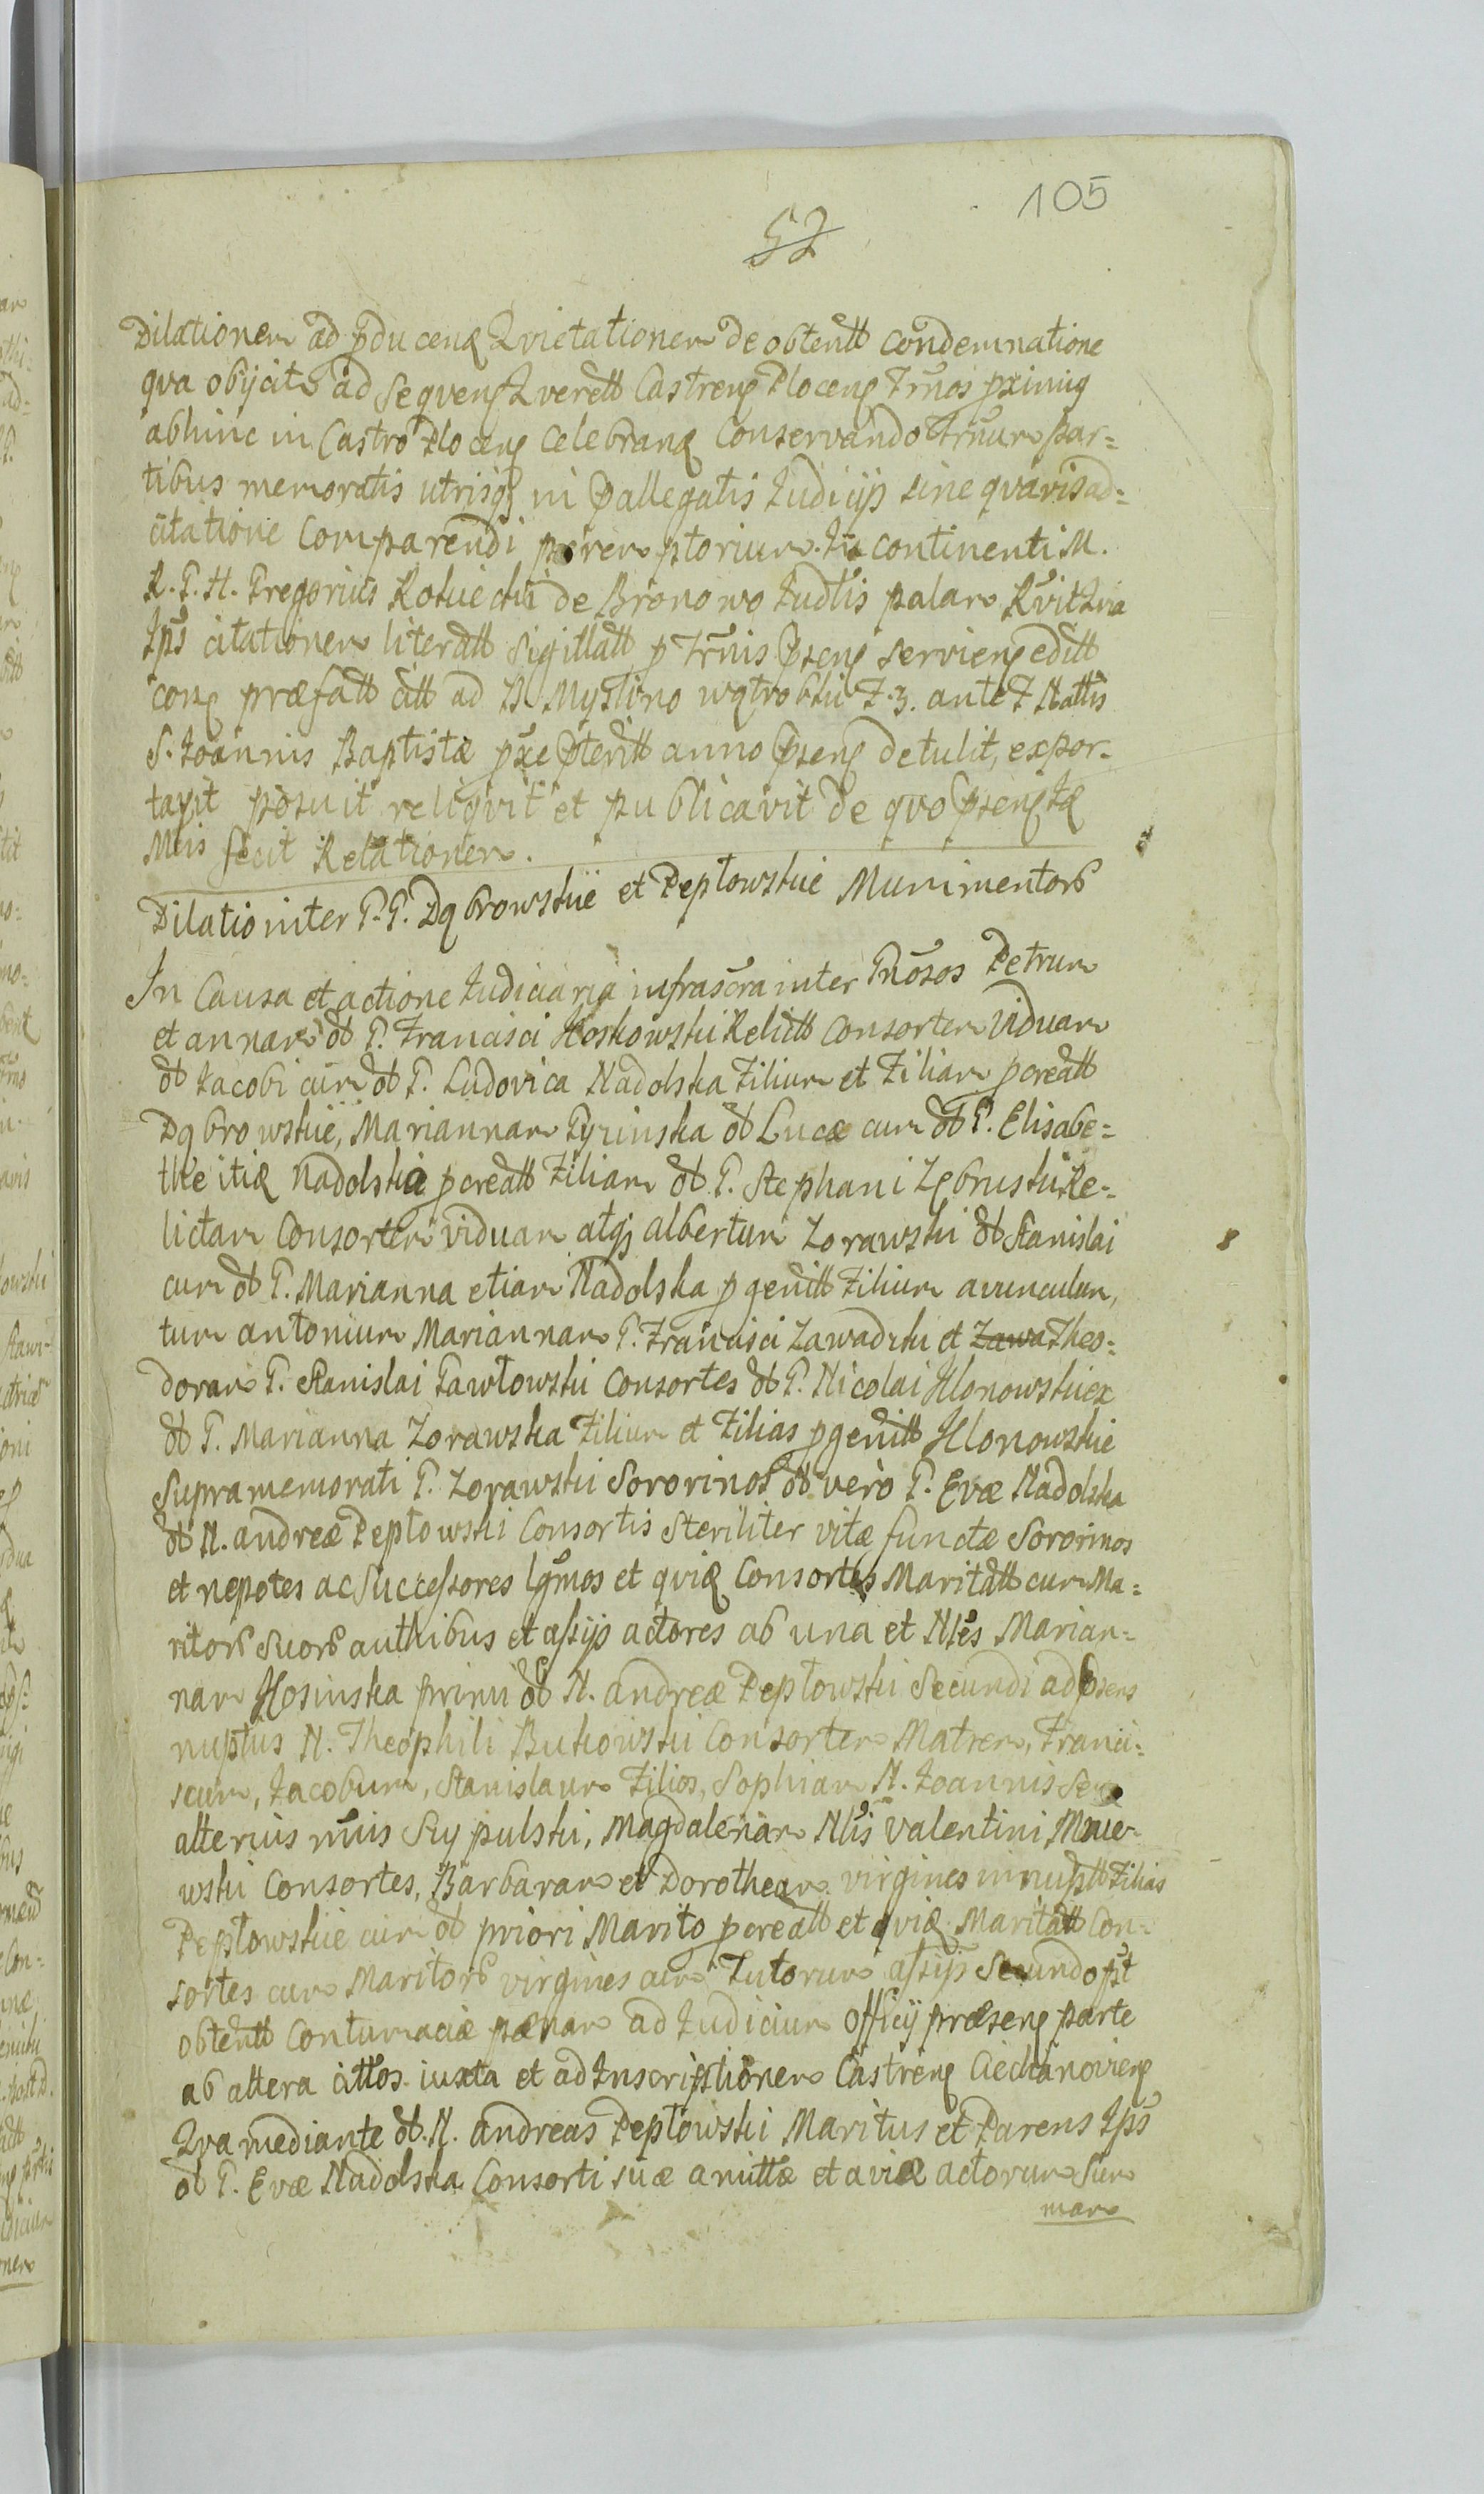 105
52
Dilationem ad pducend Qvietationem de obtentt condemnatione
qva obijcitr ad seqvens Qverett Castrens Plocens Trnos pximus
abhinc in Castro Plocens celebrand Conservando Trnum par=
tibus memoratis utrisq in pallegatis Judicijs sine qvavis ad=
citatione Comparendi peremptorium. In continenti M.
R. G. H. Gregorius Rokicki de Bronowo Judtis palam
Jps citationem literatt sigillatt p Trnis psens serviens editt
cons præfatt citt ad N Myslino F. 3. ante F Nattis
S. Joannis Baptistæ pxe pteritt anno psens detulit, expor=
tavit posuit reliqvit et publicavit de qvo psens
Mris fecit Relationem.
Dilatio inter G. G. Dąbrowskie et Pepłowskie Munimentorum
In Causa et actione Judiciaria infrascra inter Gnosos Petrum
et annam ol G. Francisci Koskowski Relictt Consortem Viduam
ol Jacobi cum ol G. Ludovica Nadolska Filium et Filiam pcreatt
Dąbrowskie, Mariannam Gyzinska ol Lucæ cum ol G. Elisabe=
the itid Nadolska pcreatt Filiam ol G. Stephani Zębruski Re=
lictam Consortem viduam atq albertum Zorawski ol Stanislai
cum ol G. Marianna etiam Nadolska pgenitt Filium avunculum,
tum antonium Mariannam G. Francisci Zawadzki et Zawa Theo=
doram G. Stanislai Gawłowski Consortes ol G. Nicolai Klonowski ex
ol G. Marianna Zorawska Filium et Filias pgenitt Klonowskie
supramemorati G. Zorawski Sororinos ol vero G. Evæ Nadolska
ol N. andreæ Pepłowski Consortis steriliter vitæ functæ Sororinos
et nepotes ac Successores lgmos et qvid Consortes Maritatt cum Ma=
ritor suor authibus et assijs actores ab una et Nles Marian=
nam Kosinska primi ol N. andreæ Pepłowski Secundi ad psens
nuptus N. Theophili Bukowski Consortem Matrem, Franci=
scum, Jacobum, Stanislaum Filios, Sophiam N. Joannis Seu
alterius nmis Sypulski, Magdalenam Nlis Valentini Mnie=
wski Consortes, Barbaram et Dorotheam virgines innuptt Filias
Pepłowskie cum ol priori Marito pcreatt et qvid Maritatt Con=
sortes cum Maritor virgines cum Tutorum assijs Secundo pst
obtentt Contumaciæ pænam ad Judicium Officij præsens parte
ab altera cittos iuxta et ad Inscriptionem Castrens Ciechanoviens
Qva mediante ol. N. andreas Pepłowski Maritus et Parens Jps
ol G. Evæ Nadolska Consorti suæ amittæ et aviæ actorum Sum
mam